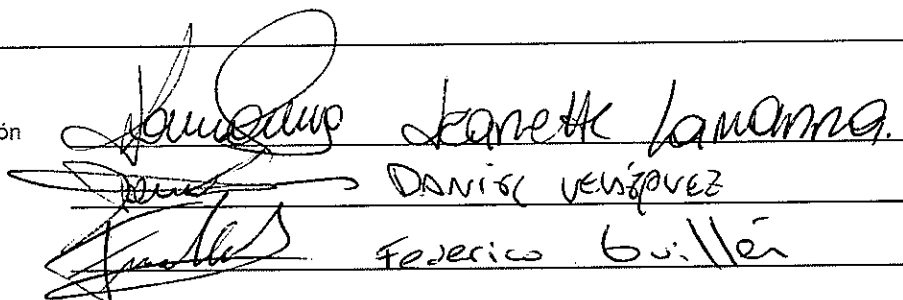 ón Jeanette Lamanna.
DANIEL VELÁZQUEZ
Federico Guillén